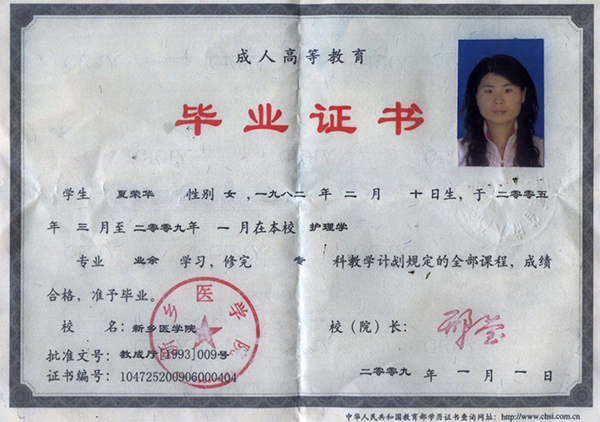 成人高等教育
毕业证书
学生 夏荣华 性别 女，一九八二年 二 月 十日生，于 二〇〇五
年 三 月至 二〇〇九 年 一 月在本校 护理学
专业 业余 学习，修完 专 科教学计划规定的全部课程，成绩
合格，准予毕业。
校 名：新乡医学院
新乡医学院
校（院）长：
批准文号：教成厅[1993]009号
证书编号：104725200906000404
二〇〇九 年 一 月 一 日
中华人民共和国教育部学历证书查询网址：http://www.chsi.com.cn